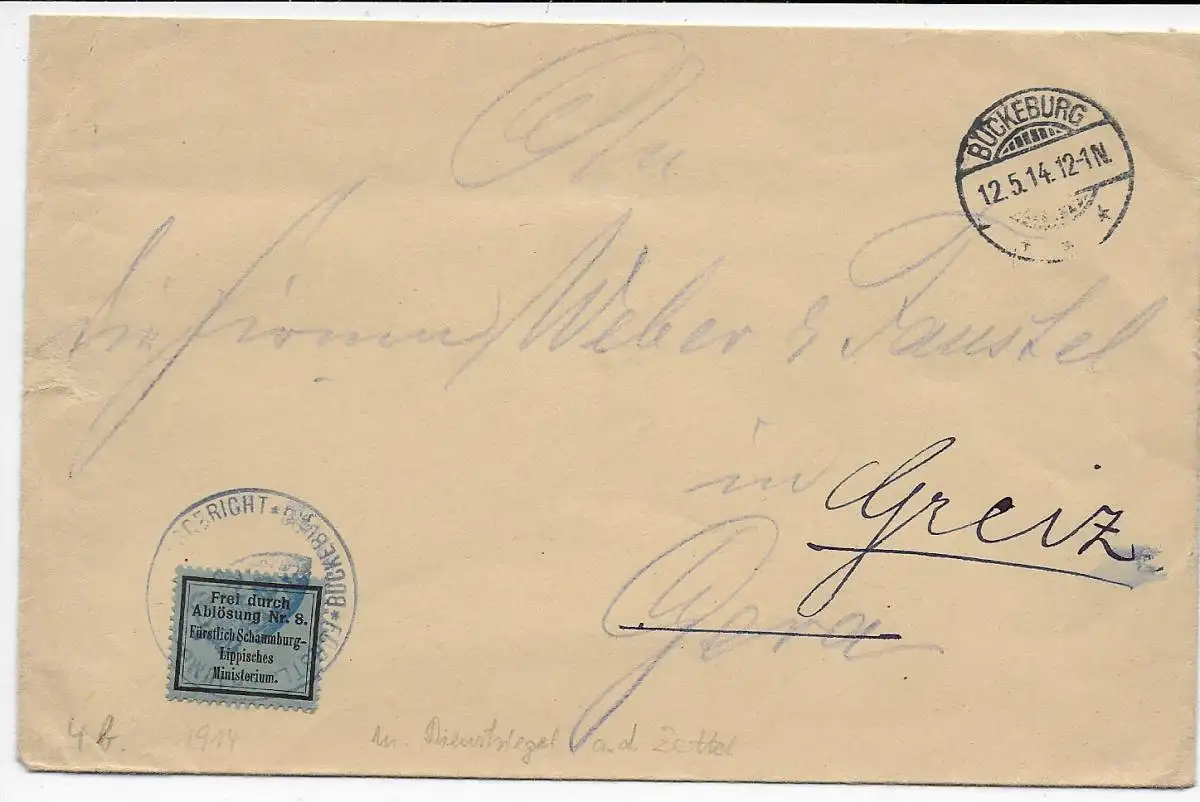 BÜCKEBURG
12.5.14.12-1N.
An
die Firma Weber & Faustel
in Greiz
Gera
GERICHT * BÜCKEBURG * FÜRSTL
Frei durch
Ablösung Nr. 8.
Fürstlich Schaumburg-
Lippisches
Ministerium.
4 b. 1914 m. Dienstsiegel a.d. Zettel